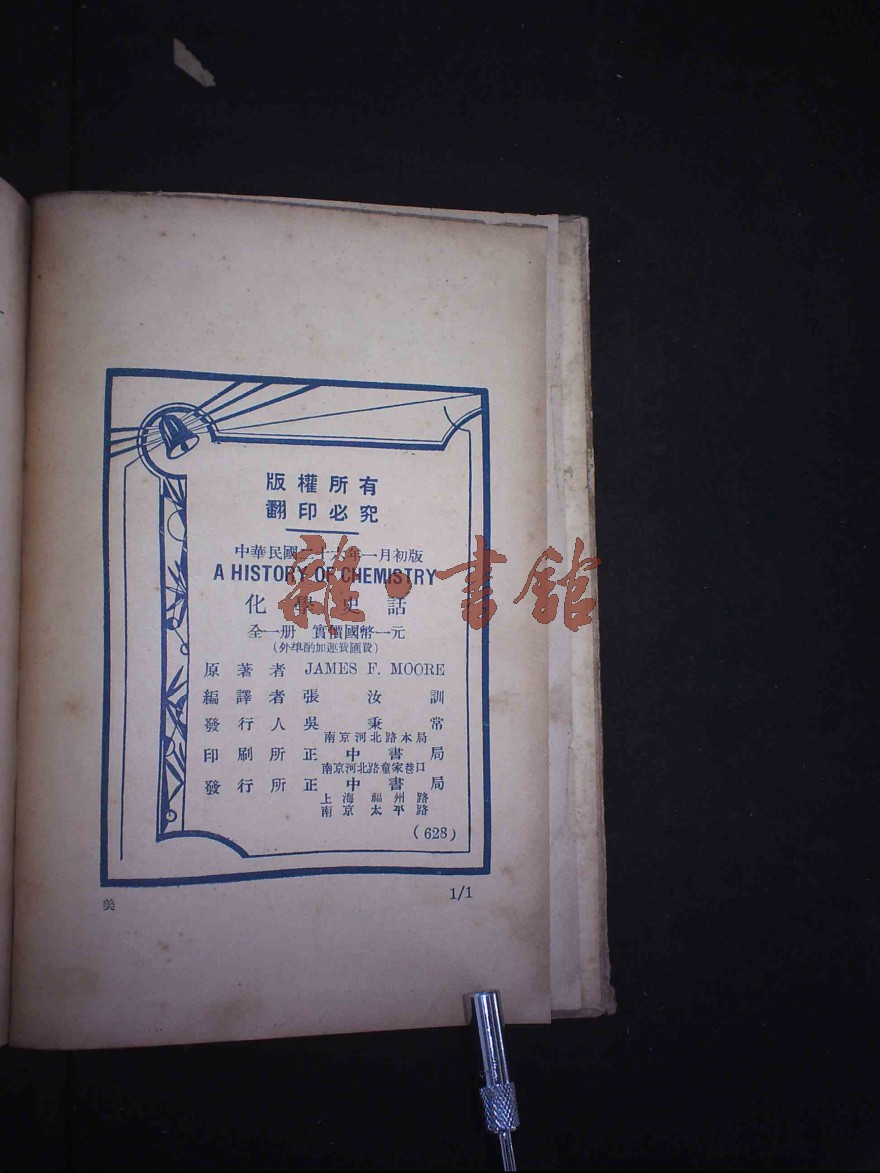 版權所有
翻印必究
中華民國二十六年一月初版
A HISTORY OF CHEMISTRY
化學史話
全一册 實價國幣一元
(外埠酌加運費匯費)
原著者 JAMES F. MOORE
編譯者 張汝訓
發行人 吳秉常
南京河北路本局
印刷所 正中書局
南京河北路童家巷口
發行所 正中書局
上海福州路
南京太平路
(628)
美
1/1
雜·書館